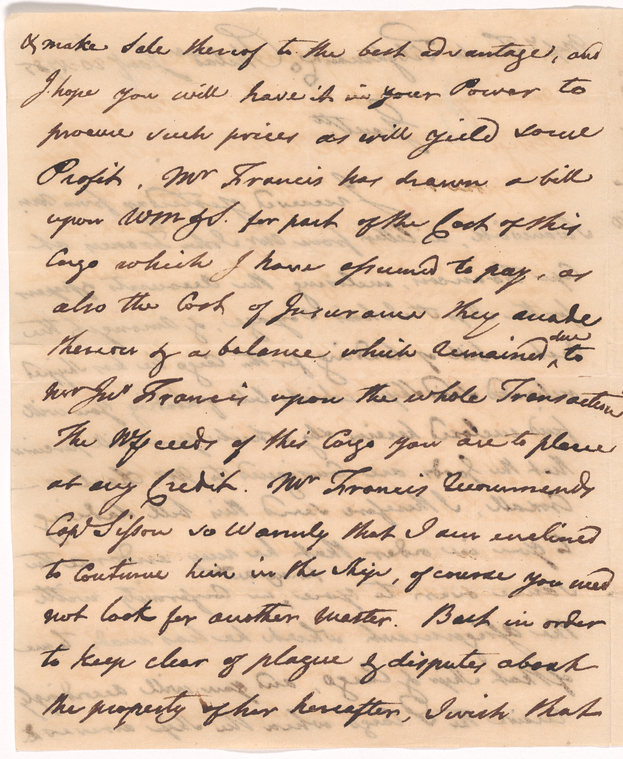 & make Sale thereof to the best advantage, and
I hope you will have it in your Power to
procure such prices as will yield some
Profit. Mr Francis has drawn a bill
upon WM&S. for part of the Cost of this
Cargo which I have assumed to pay, as
also the Cost of Insurance they made
thereon & a balance which remained due to
Mr Jno Francis upon the whole Transaction
The Proceeds of this Cargo you are to place
at my Credit. Mr Francis recommends
Capt Sisson so Warmly that I am enclined
to Continue him in the ship, of course you need
not look for another Master. But in order
to keep clear of plague & disputes about
the property of her hereafter, I wish that